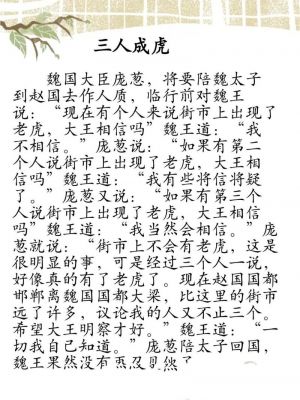 三人成虎
魏国大臣庞葱，将要陪魏太子
到赵国去作人质，临行前对魏王
说：“现在有个人来说街市上出现了
老虎，大王相信吗？”魏王道：“我
不相信。”庞葱说：“如果有第二
个人说街市上出现了老虎，大王相
信吗”魏王道：“我有些将信将疑
了。”庞葱又说：“如果有第三个
人说街市上出现了老虎，大王相信
吗”魏王道：“我当然会相信。”庞
葱就说：“街市上不会有老虎，这是
很明显的事，可是经过三个人一说，
好像真的有了老虎了。现在赵国国都
邯郸离魏国国都大梁，比这里的街市
远了许多，议论我的人又不止三个。
希望大王明察才好。”魏王道：“一
切我自己知道。”庞葱陪太子回国，
魏王果然没有再召见他了